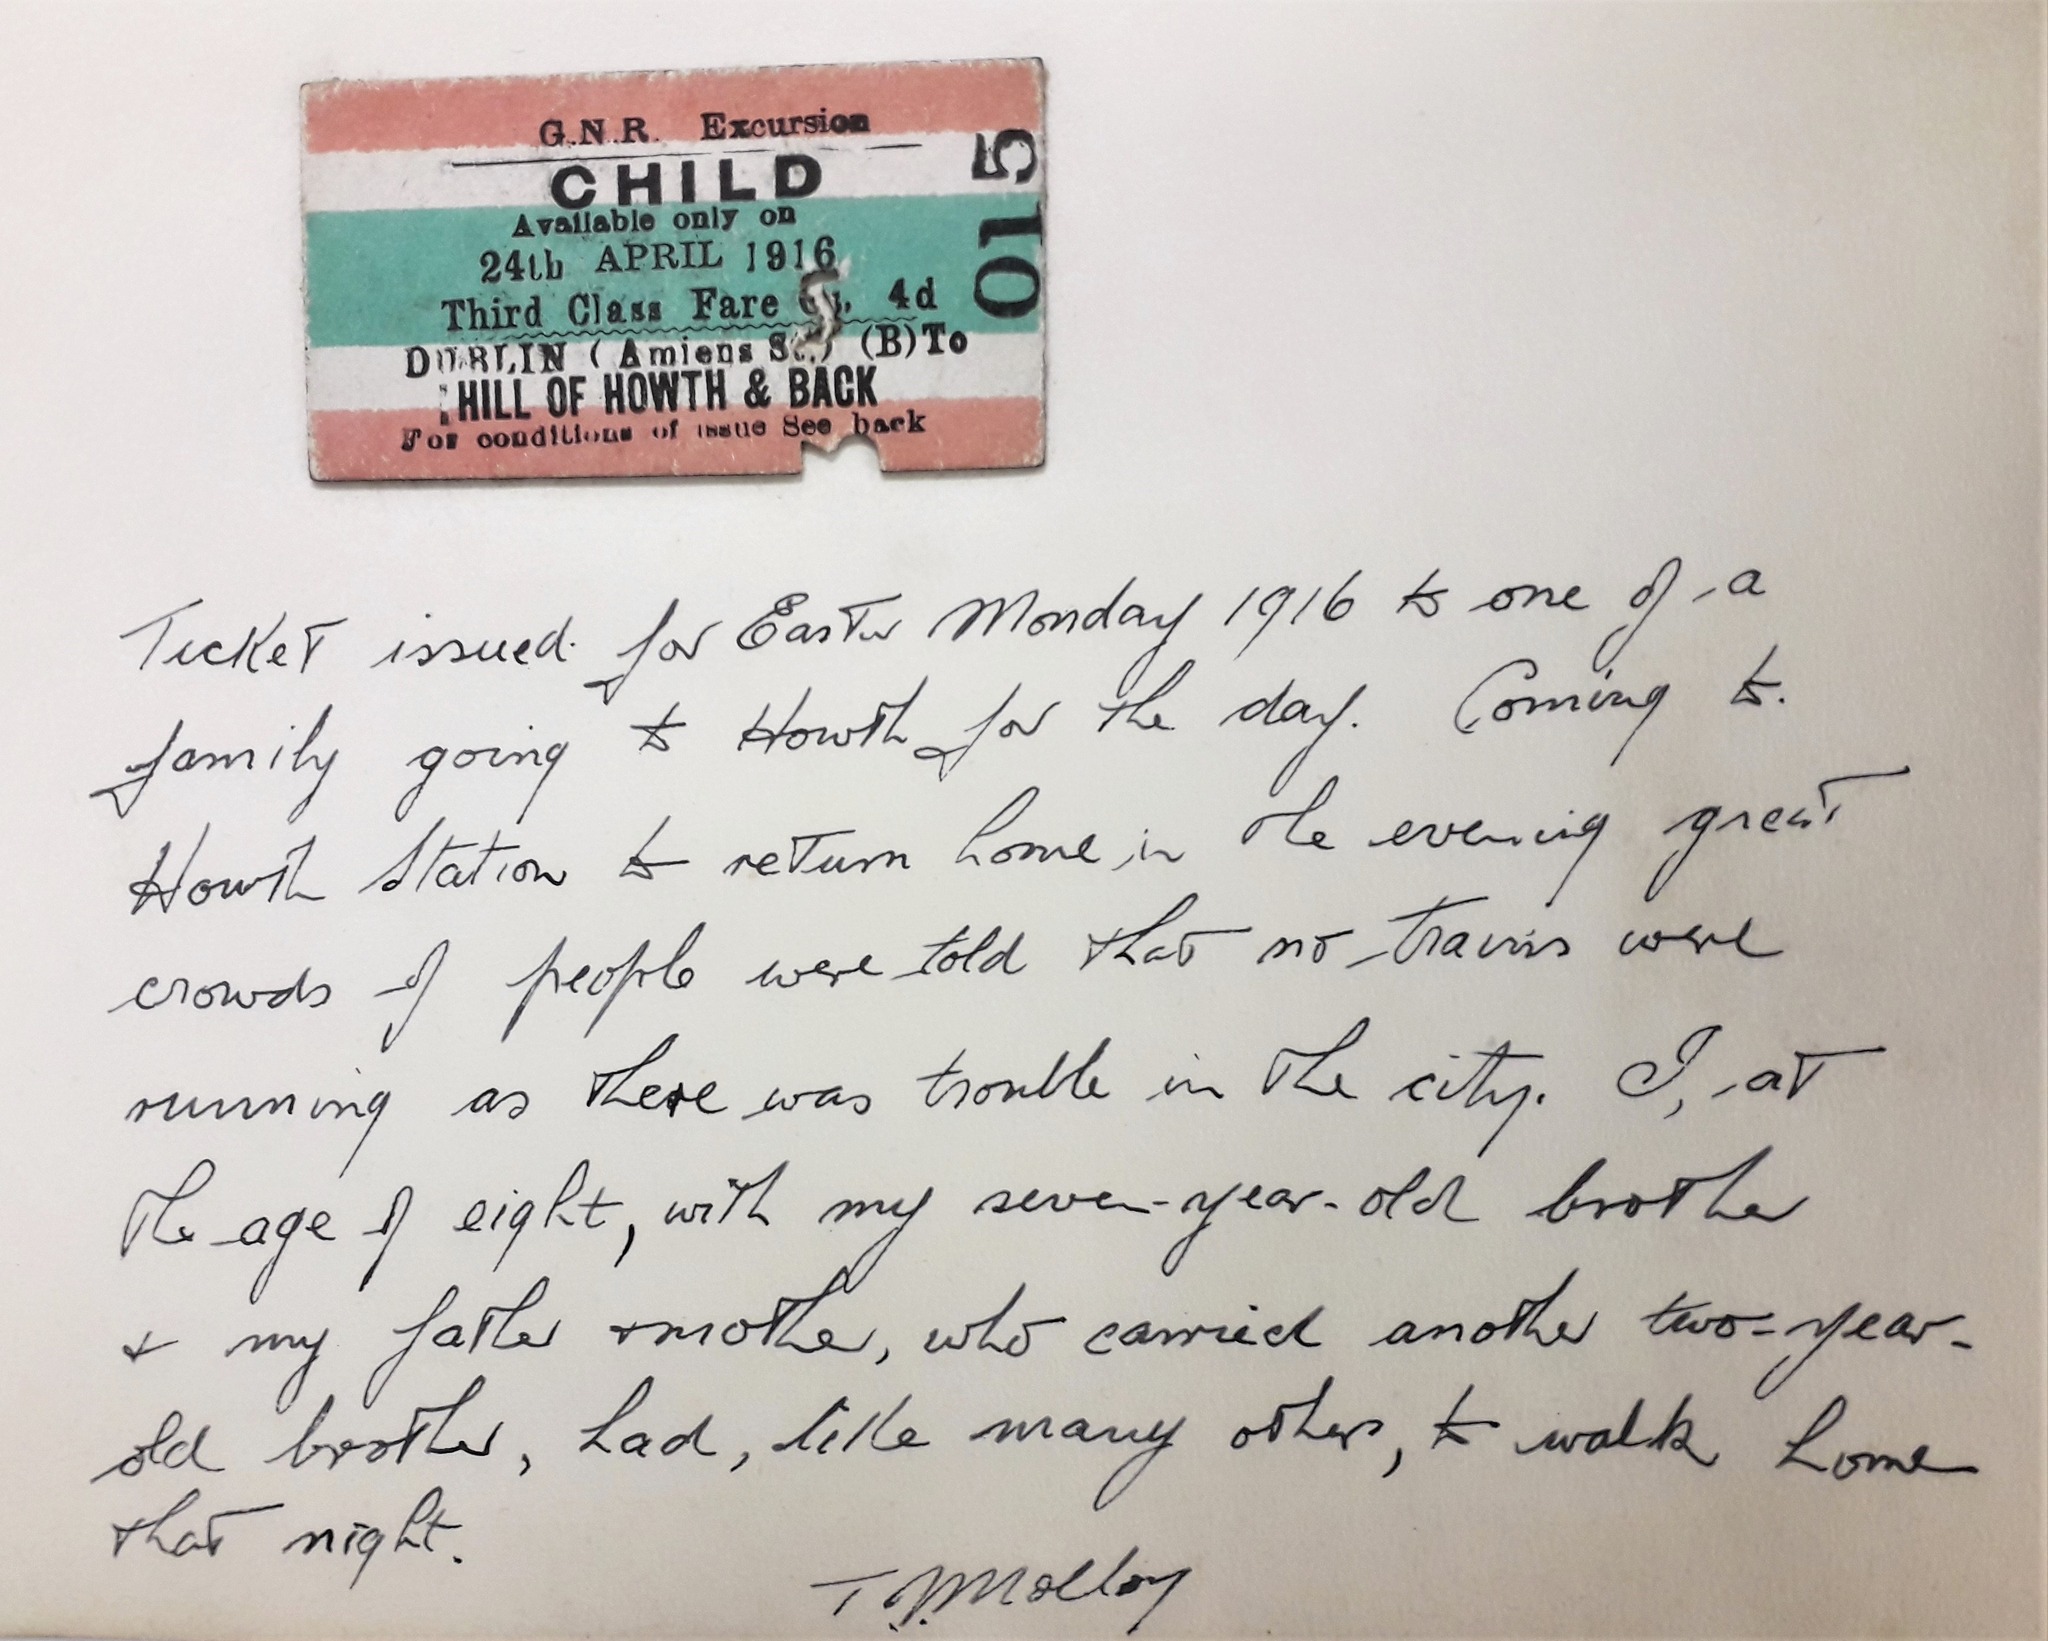 G.N.R. Excursion
CHILD
Available only on
24th APRIL 1916
Third Class Fare 4d
DUBLIN (Amiens St.) (B) To
HILL OF HOWTH & BACK
For conditions of issue See back
015
Ticket issued for Easter Monday 1916 to one of a
family going to Howth for the day. Coming to
Howth Station to return home in the evening great
crowds of people were told that no trains were
running as there was trouble in the city. I, at
the age of eight, with my seven-year-old brother
+ my father + mother, who carried another two-year-
old brother, had, like many others, to walk home
that night.
T. J. Molloy